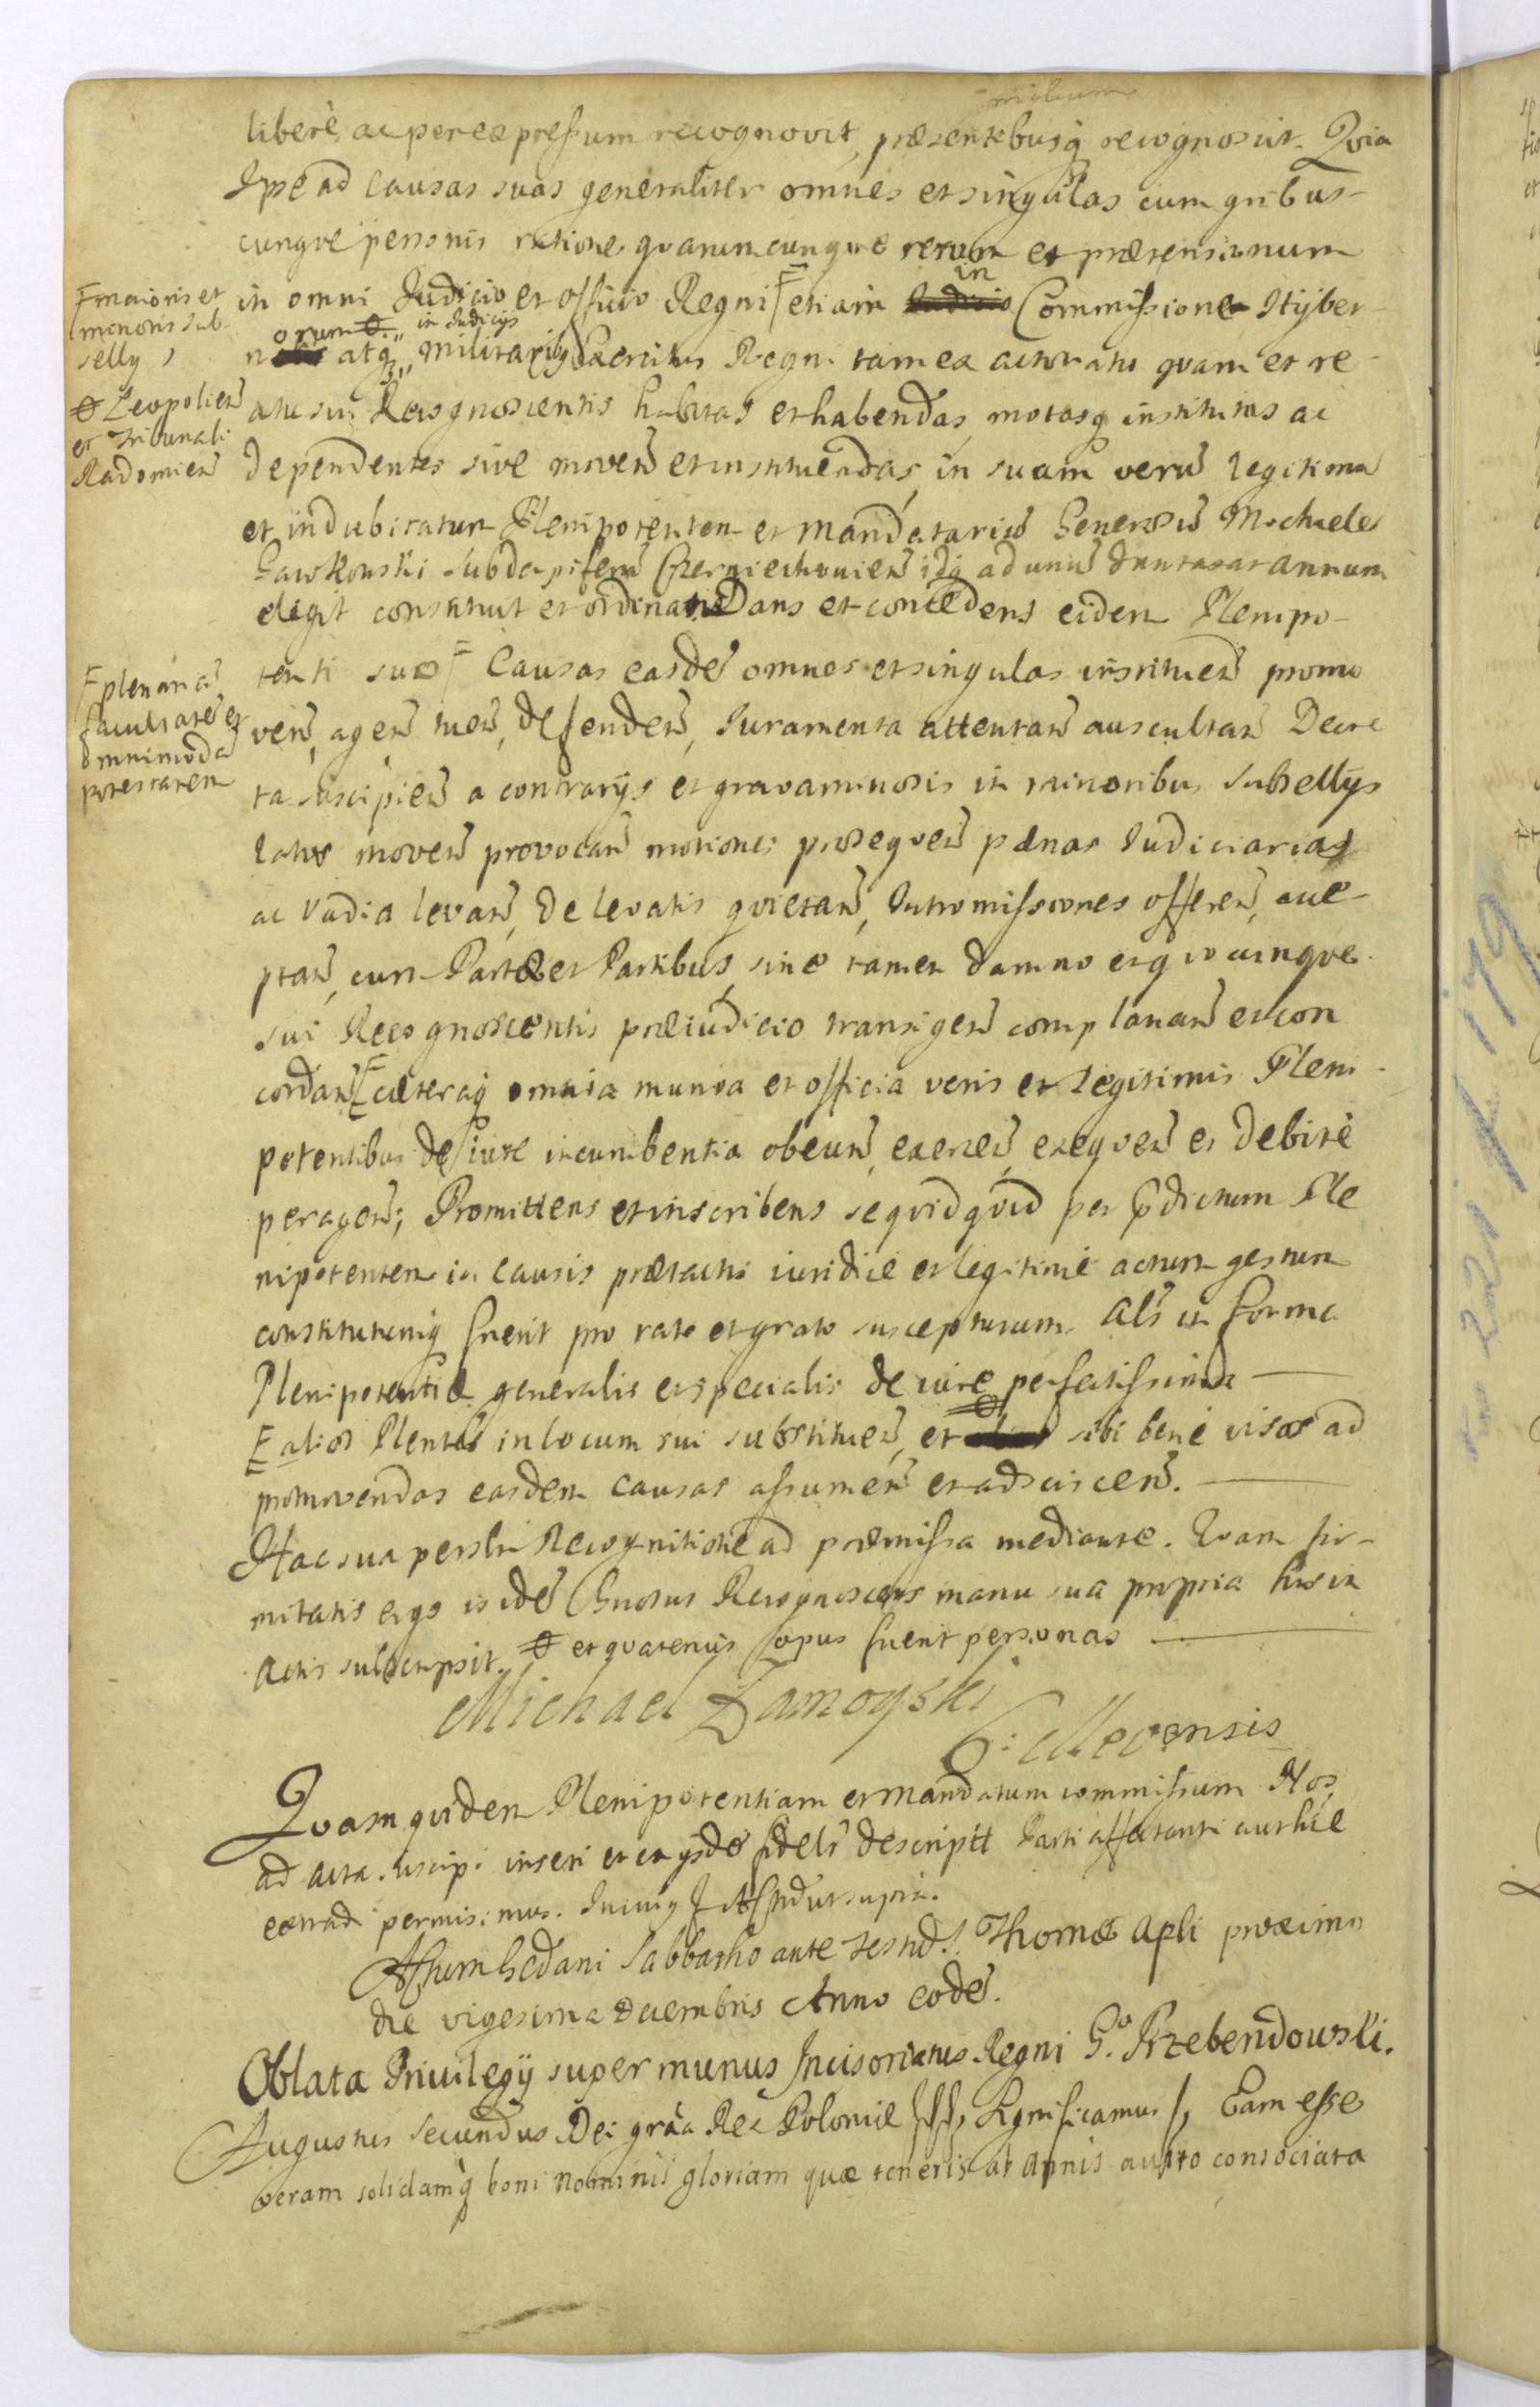 liberè ac per expressum recognovit, præsentibusq recognoscit. Quia
Ipse ad causas suas generaliter omnes et singulas cum quibus-
cunque personis ratione quarumcunque rerum et prætensionum
in omni Judicio et officio Regni etiam in Commissione Hyber-
norum atq in Judicijs militaribq Exercitus Regni tam ex actoratu quam et re-
atu sui Recognoscentis habitas et habendas, motasq institutas ac
dependentes sive moven et instituendas, in suam veru legitimu
et indubitatum Plenipotentem et Mandatariu Generosu Michaele
subdapiferu Czerniechovien idq ad unu duntaxat annum
elegit constituit et ordinat Dans et concedens eidem Plenipo-
tenti suo Causas easde omnes et singulas instituen promo
ven, agen tuen, defenden, Juramenta attentan auscultan Decre
ta suscipien a contrarijs et gravaminosis in minoribus Subsellijs
latis moven provocan motiones prosequen pænas Judiciarias
ac Vadia levan, de levatis quietan, Intromissiones offeren, acce-
ptan, cum Parte et Partibus, sine tamen damno et quocunque
sui Recognoscentis præiudicio transigen complanan et con
cordan cæteraq omnia munia et officia veris et legitimis Pleni-
potentibus de iure incumbentia obeun, exercen, exequen et debitè
peragen; Promittens et inscribens se quidquid per prædictum Ple
nipotentem in causis prætactis iuridicè et legitimè actum gestum
constitutumq fuerit pro rato et grato suscepturum. Als in forma
Plenipotentiæ generalis et specialis de iure perfectissima
alios Plentes in locum sui substituen, et sibi benè visas ad
promovendas easdem causas assumen et adsciscen.
Hac sua persli Recognitione ad præmissa mediante. Quam fir-
mitatis ergo is ide Gnosus Recognoscens manu sua propria his in
Actis subscripsit. et quatenus opus fuerit personas
Michael Zamoyski
C: Mevensis
Quam quidem Plenipotentiam et mandatum commissum Nos
ad acta suscipi inseri et ex ijsde fidelr descriptt Parti affectanti authce
extradi permisimus. supra.
Actum Gedani Sabbatho ante Festu S. Thomæ Apli proximo
die vigesima Decembris Anno eode.
Oblata Privilegij super munus Incisoriatus Regni Go Przebendowski.
Augustus Secundus Dei gra Rex Poloniæ Significamus Eam esse
veram solidamq boni nominis gloriam quæ teneris ab annis consociata
maioris et
minoris sub-
selly
Leopolien
et Tribunali
Radomien
plenaria
facultate et
omnimoda
potestatem